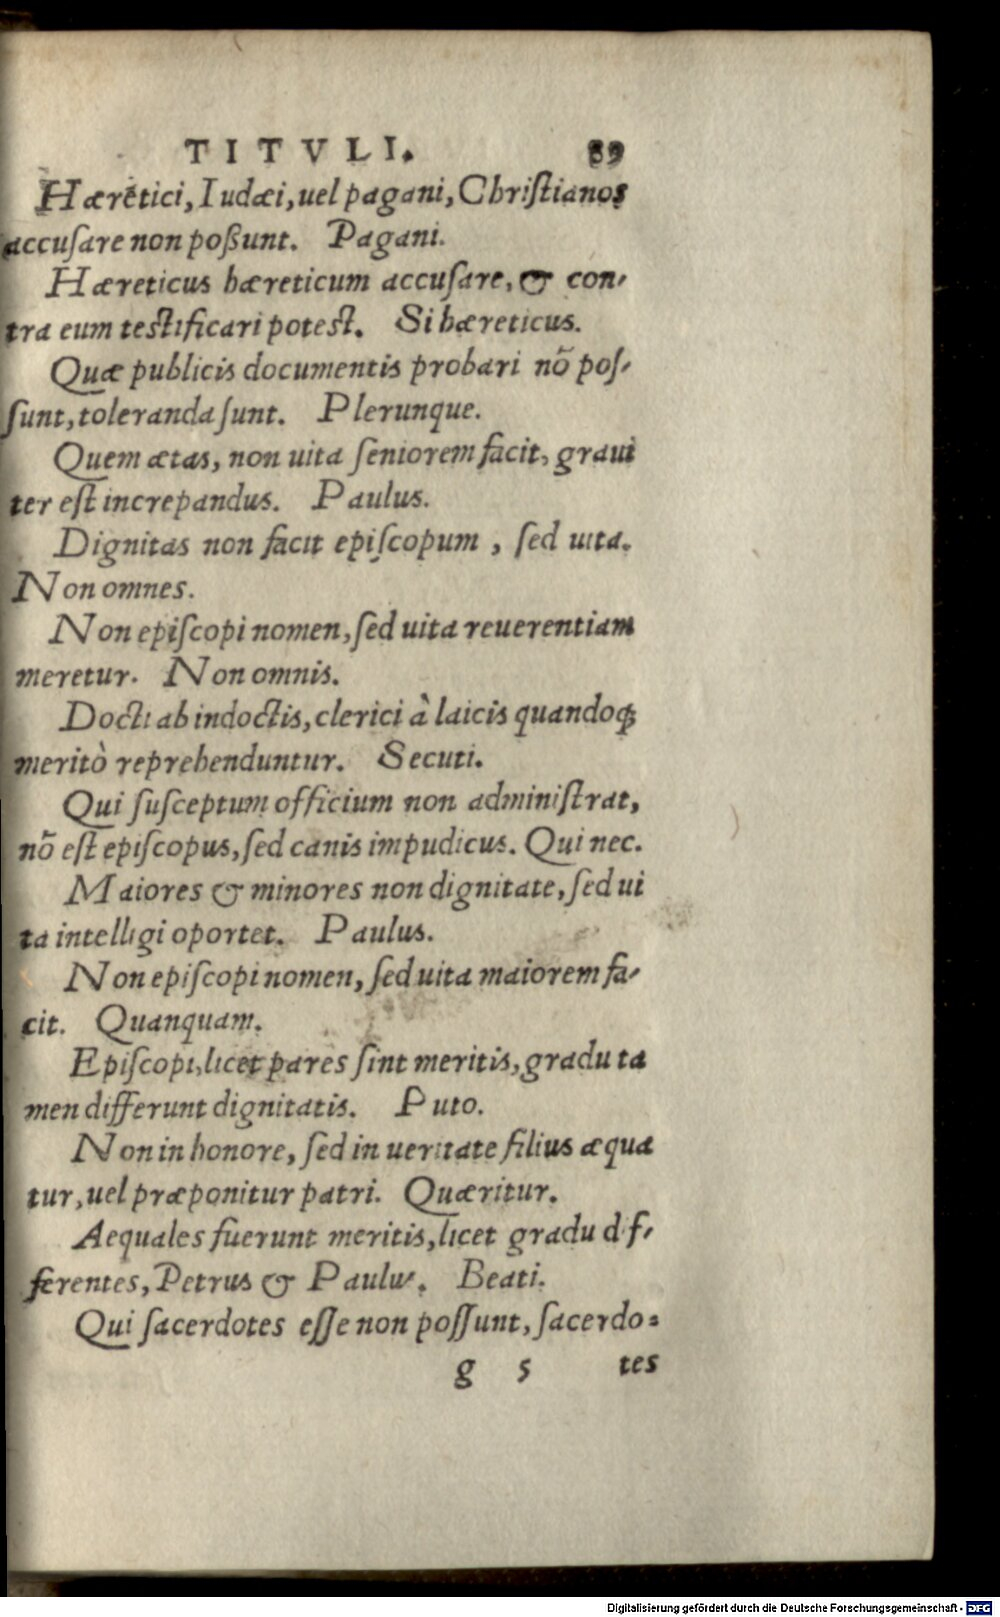 TITVLI. 89
Hæretici, Iudæi, uel pagani, Chriſtianos
accuſare non poßunt. Pagani.
Hæreticus hæreticum accuſare, & con-
tra eum teſtificari poteſt. Si hæreticus.
Quæ publicis documentis probari nō poſ-
ſunt, toleranda ſunt. Plerunque.
Quem ætas, non uita ſeniorem facit, graui
ter eſt increpandus. Paulus.
Dignitas non facit epiſcopum, ſed uita.
Non omnes.
Non epiſcopi nomen, ſed uita reuerentiam
meretur. Non omnis.
Docti ab indoctis, clerici à laicis quandoq;
meritò reprehenduntur. Secuti.
Qui ſuſceptum officium non adminiſtrat,
nō eſt epiſcopus, ſed canis impudicus. Qui nec.
Maiores & minores non dignitate, ſed ui
ta intelligi oportet. Paulus.
Non epiſcopi nomen, ſed uita maiorem fa-
cit. Quanquam.
Epiſcopi, licet pares ſint meritis, gradu ta
men differunt dignitatis. Puto.
Non in honore, ſed in ueritate filius æqua
tur, uel præponitur patri. Quæritur.
Aequales fuerunt meritis, licet gradu dif-
ferentes, Petrus & Paulus. Beati.
Qui ſacerdotes eſſe non poſſunt, ſacerdo=
g 5 tes
Digitalisierung gefördert durch die Deutsche Forschungsgemeinschaft - DFG